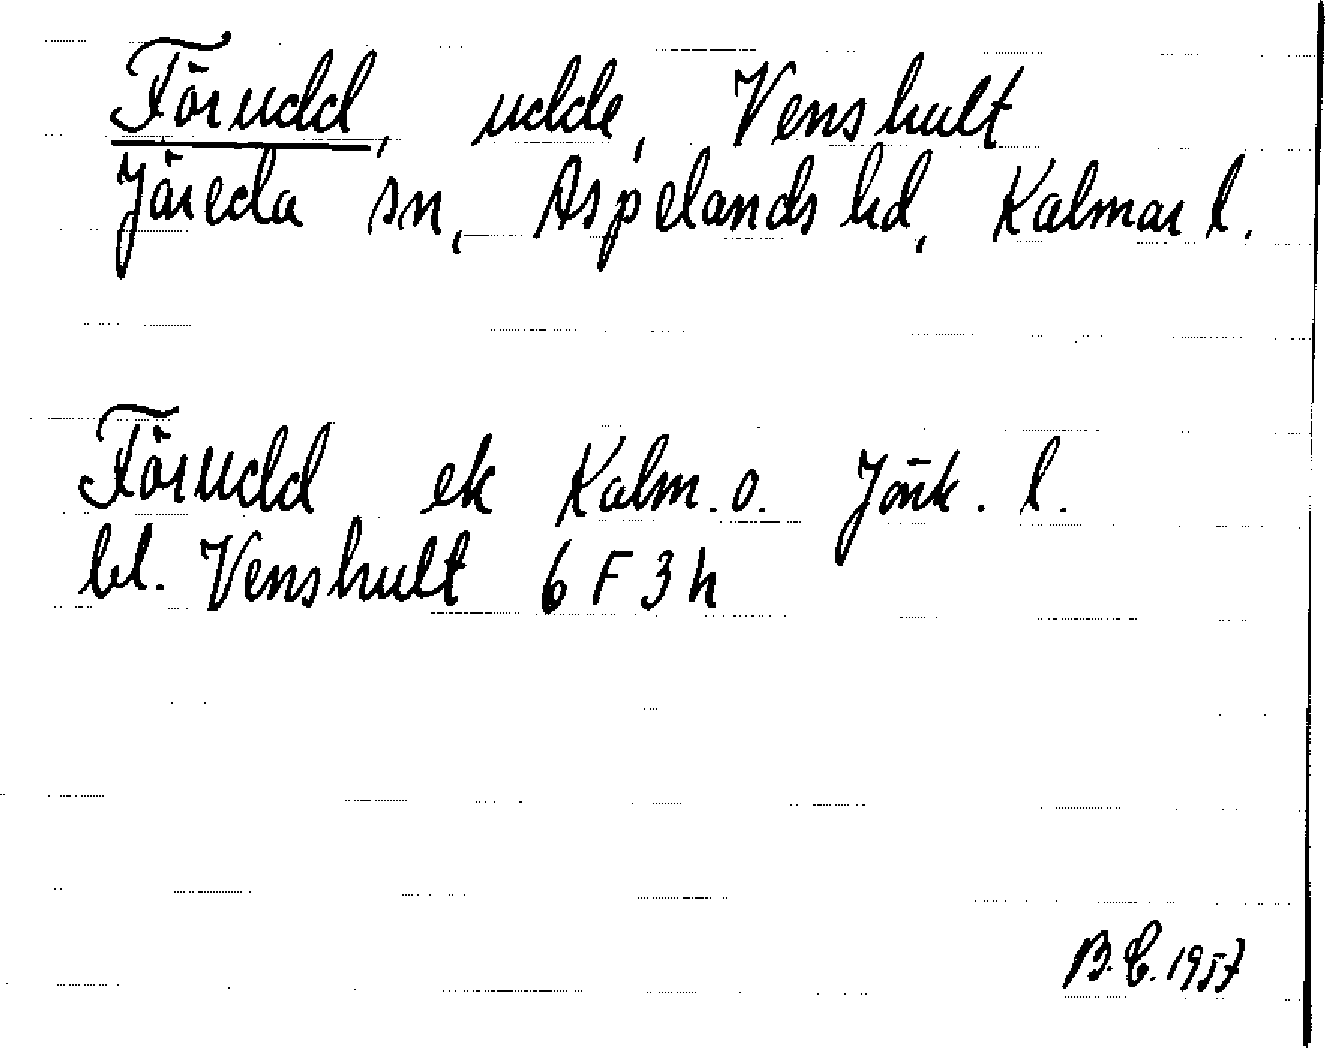 Förudd, udde, Venshult
Järeda sn, Aspelands hd, Kalmar l.
Förudd ek Kalm. o. Jönk. l.
bl. Venshult 6 F 3 h
B.E. 1957